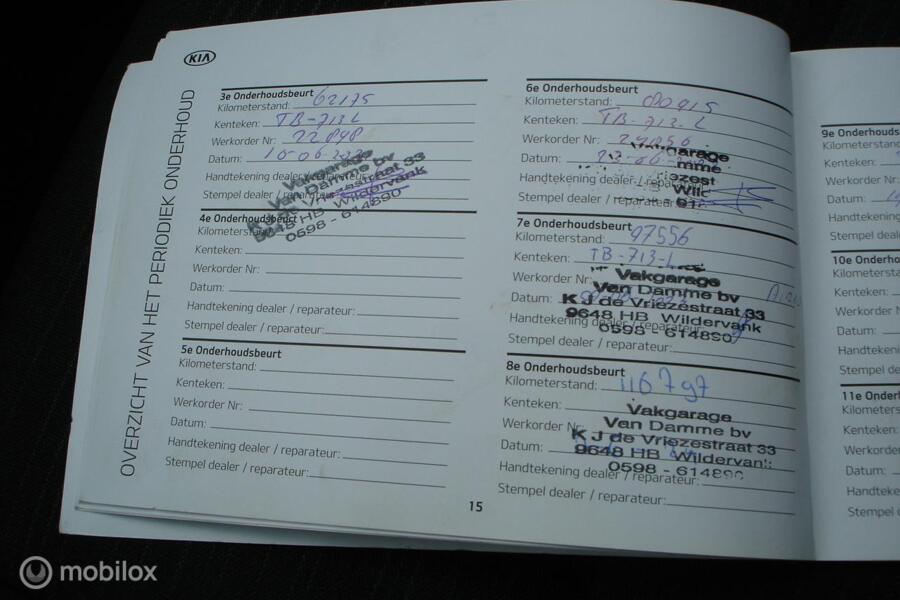 KIA
OVERZICHT VAN HET PERIODIEK ONDERHOUD
3e Onderhoudsbeurt
Kilometerstand: 62175
Kenteken: TB-713L
Werkorder Nr: 22848
Datum: 10-06-202
Handtekening dealer / reparateur:
Stempel dealer / reparateur:
Vakgarage
Van Damme bv
K J de Vriezestraat 33
9648 HB Wildervank
0598 - 614890
4e Onderhoudsbeurt
Kilometerstand:
Kenteken:
Werkorder Nr:
Datum:
Handtekening dealer / reparateur:
Stempel dealer / reparateur:
5e Onderhoudsbeurt
Kilometerstand:
Kenteken:
Werkorder Nr:
Datum:
Handtekening dealer / reparateur:
Stempel dealer / reparateur:
6e Onderhoudsbeurt
Kilometerstand: 80915
Kenteken: TB-713-L
Werkorder Nr:
Datum:
Handtekening dealer / reparateur:
Stempel dealer / reparateur:
7e Onderhoudsbeurt
Kilometerstand: 97556
Kenteken: TB-713-L
Werkorder Nr:
Datum:
Handtekening dealer / reparateur:
Stempel dealer / reparateur:
Vakgarage
Van Damme bv
K J de Vriezestraat 33
9648 HB Wildervank
0598 - 614890
8e Onderhoudsbeurt
Kilometerstand: 116797
Kenteken:
Werkorder Nr:
Datum:
Handtekening dealer / reparateur:
Stempel dealer / reparateur:
Vakgarage
Van Damme bv
K J de Vriezestraat 33
9648 HB Wildervank
0598 - 614890
15
9e Onderhouds
Kilometerstand
Kenteken:
Werkorder Nr:
Datum:
Handtekening
Stempel deale
10e Onder
Kilometersta
Kenteken:
Werkorder N
Datum:
Handtekeni
Stempel de
11e Onder
Kilometers
Kenteken:
Werkorder
Datum:
Handteke
Stempel d
mobilox